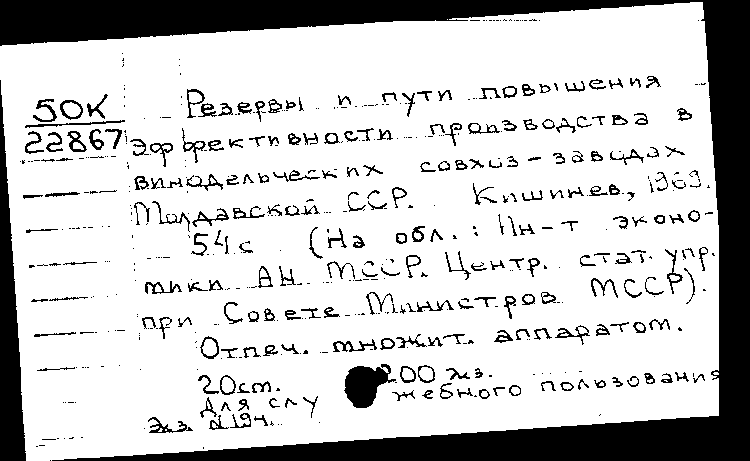 50К
22867
Резервы и пути повышения
эффективности производства в
винодельческих совхоз-заводах
Молдавской ССР. Кишинев, 1969.
54с (На обл.: Ин-т эконо-
мики АН МССР. Центр. стат. упр.
при Совете Министров МССР).
Отпеч. множит. аппаратом.
20ст. 200 экз.
Для служебного пользования
Экз. №194.